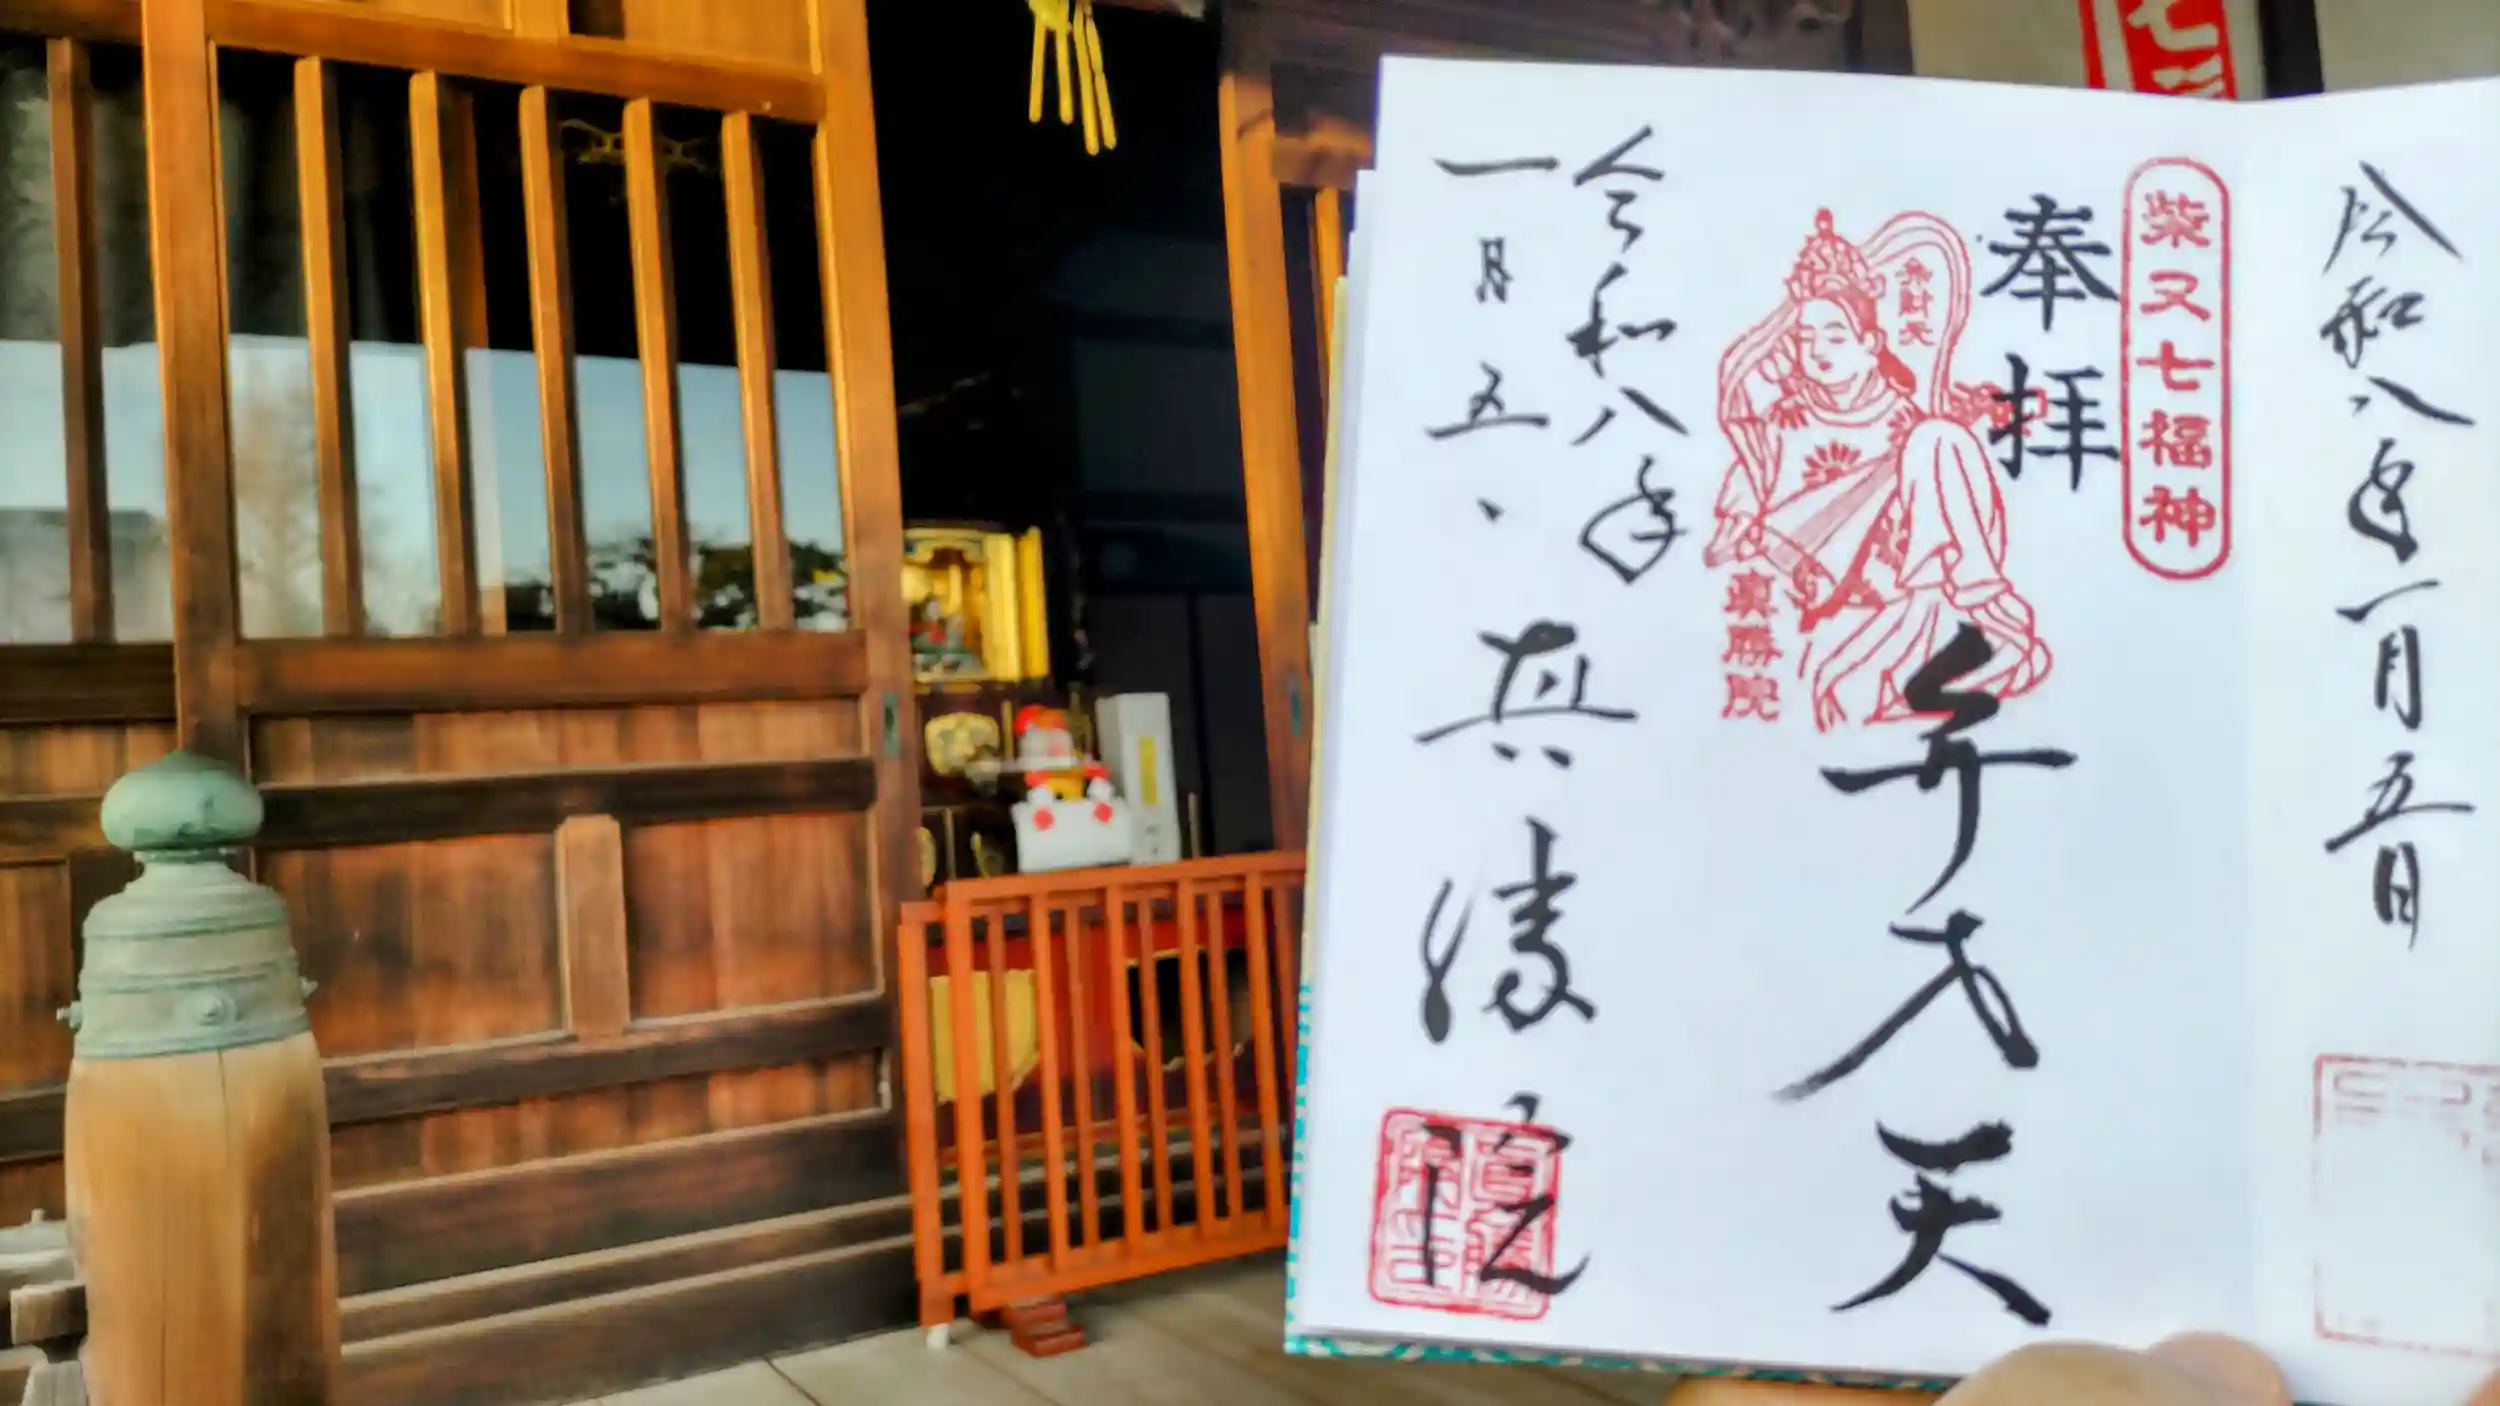 令和八年一月五日
柴又七福神
奉拝
弁財天
真勝院
弁才天
令和八年
一月五日
真勝院